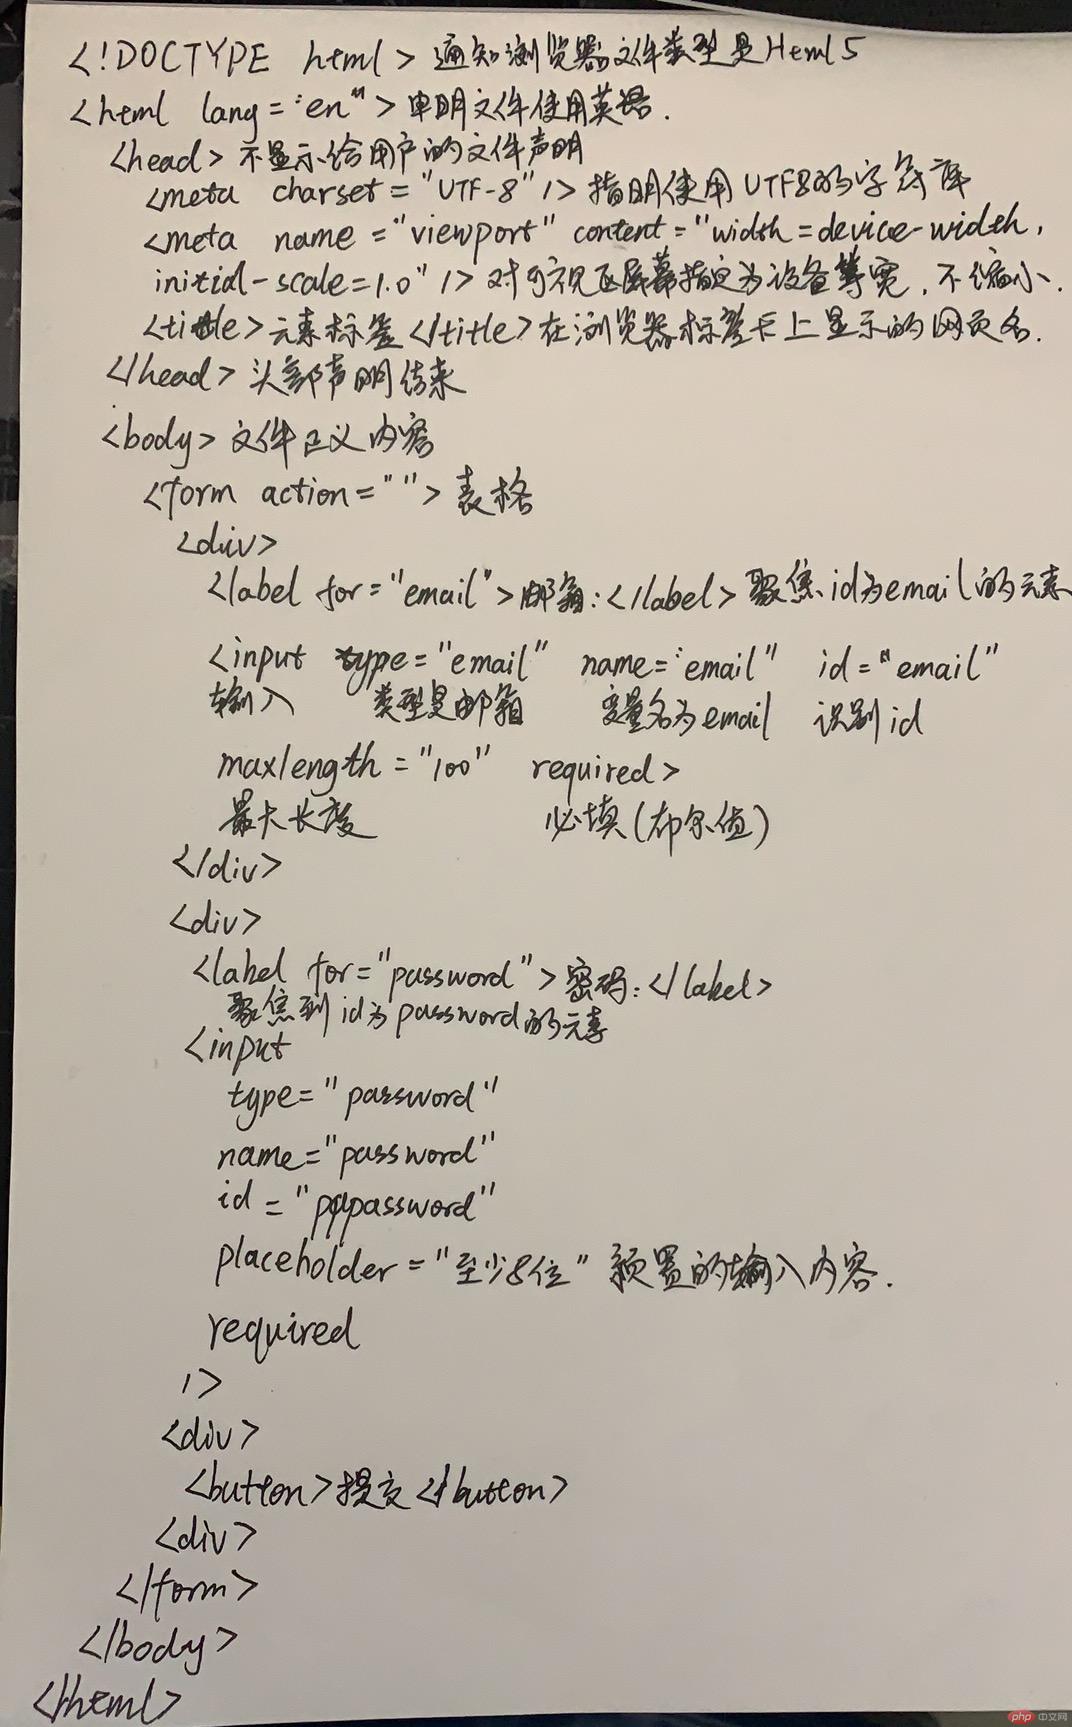 <!DOCTYPE html> 通知浏览器文件类型是Html5
<html lang="en"> 申明文件使用英语.
<head> 不显示给用户的文件声明
<meta charset="UTF-8" /> 指明使用UTF8的字符库
<meta name="viewport" content="width=device-width,
initial-scale=1.0" /> 对可视区屏幕指定为设备等宽，不缩小.
<title>元素标签</title>在浏览器标签卡上显示的网页名.
</head> 头部声明结束
<body> 文件正义内容
<form action=""> 表格
<div>
<label for="email">邮箱:</label>聚焦id为email的元素
<input type="email" name="email" id="email"
输入 类型是邮箱 变量名为email 识别id
maxlength="100" required>
最大长度 必填(布尔值)
</div>
<div>
<label for="password">密码:</label>
聚焦到id为password的元素
<input
type="password"
name="password"
id="pppassword"
placeholder="至少8位" 预置的输入内容.
required
/>
<div>
<button>提交</button>
<div>
</form>
</body>
</html>
php 中文网